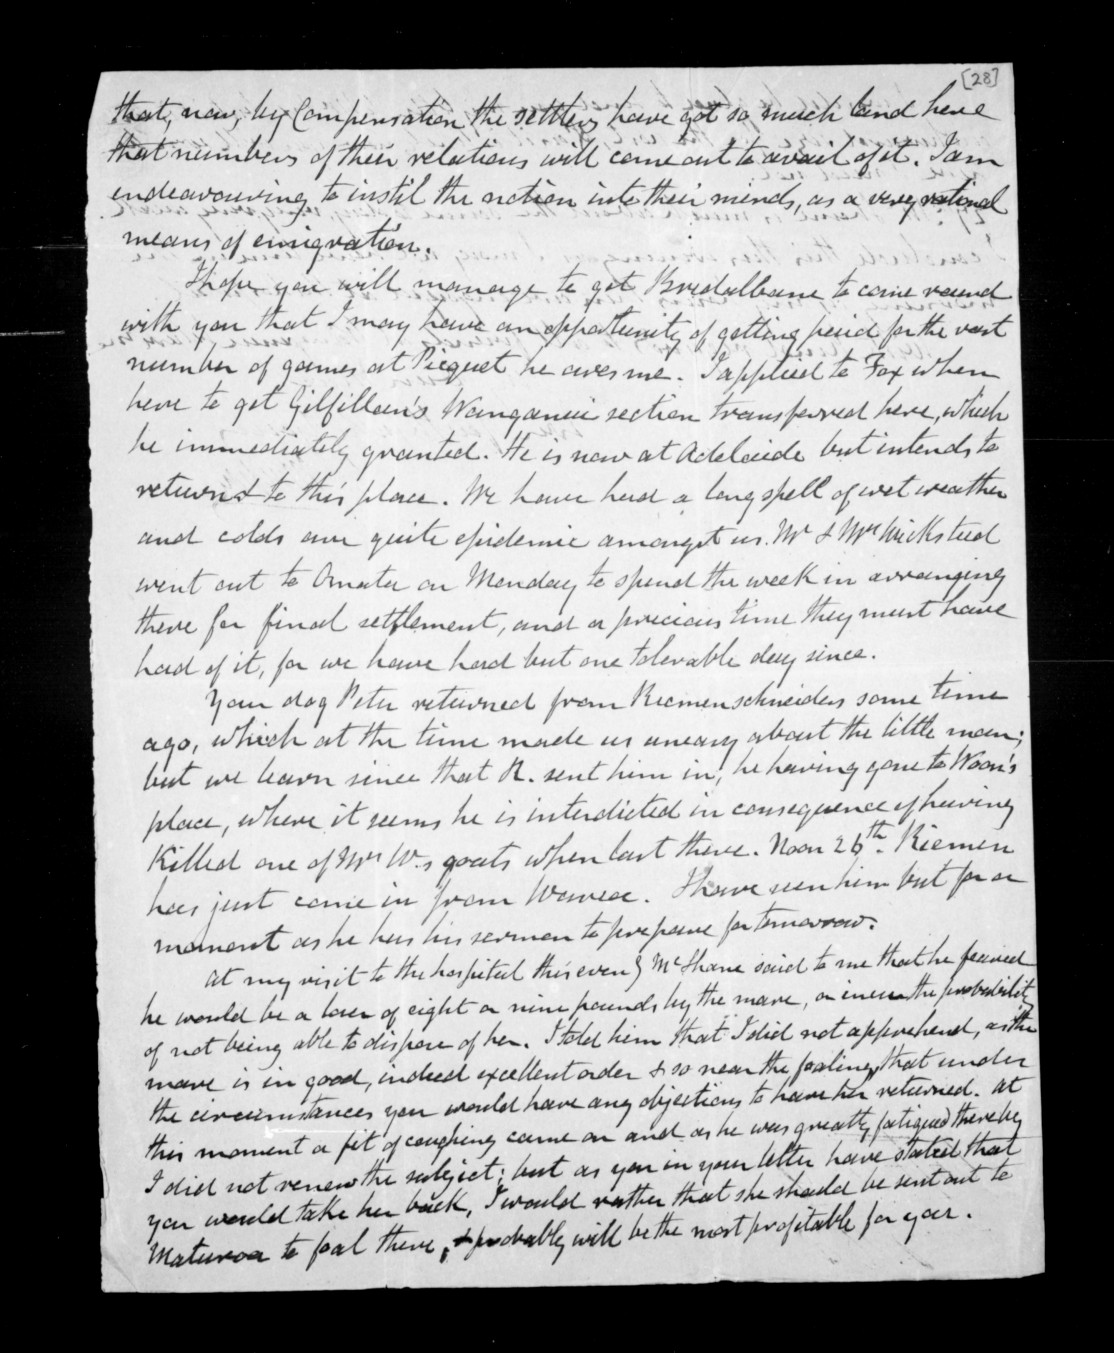 [28]
that, now, by Compensation the settlers have got so much land here
that numbers of their relations will come out to avail of it. I am
endeavouring to instil the notion into their minds, as a very rational
means of emigration.
I hope you will manage to get Bredalbane to come round
with you that I may have an opportunity of getting paid for the vast
number of games at Picquet he owes me. I applied to Fox when
here to get Gilfillan's Wanganui section transferred here, which
he immediately granted. He is now at Adelaide but intends to
return to this place. We have had a long spell of wet weather
and colds are quite epidemic amongst us. Mr & Mrs Wicksteed
went out to Omata on Monday to spend the week in arranging
there for final settlement, and a precious time they must have
had of it, for we have had but one tolerable day since.
Your dog Peter returned from Riemenschneiders some time
ago, which at the time made us uneasy about the little man;
but we learn since that R. sent him in, he having gone to Woon's
place, where it seems he is interdicted in consequence of having
killed one of Mrs W.s goats when last there. Noon 26th. Riemen
has just come in from Warea. I have seen him but for a
moment as he has his sermon to prepare for tomorrow.
At my visit to the hospital this eveng McShane said to me that he feared
he would be a loser of eight or nine pounds by the mare, or the probability
of not being able to dispose of her. I told him that I did not apprehend, as the
mare is in good, indeed excellent order & so near the foaling, that under
the circumstances you would have any objections to have her returned. At
this moment a fit of coughing came on and as he was greatly fatigued thereby
I did not renew the subject; but as you in your letter have stated that
you would take her back, I would rather that she should be sent out to
Maturoa to foal there, & probably will be the most profitable for you.